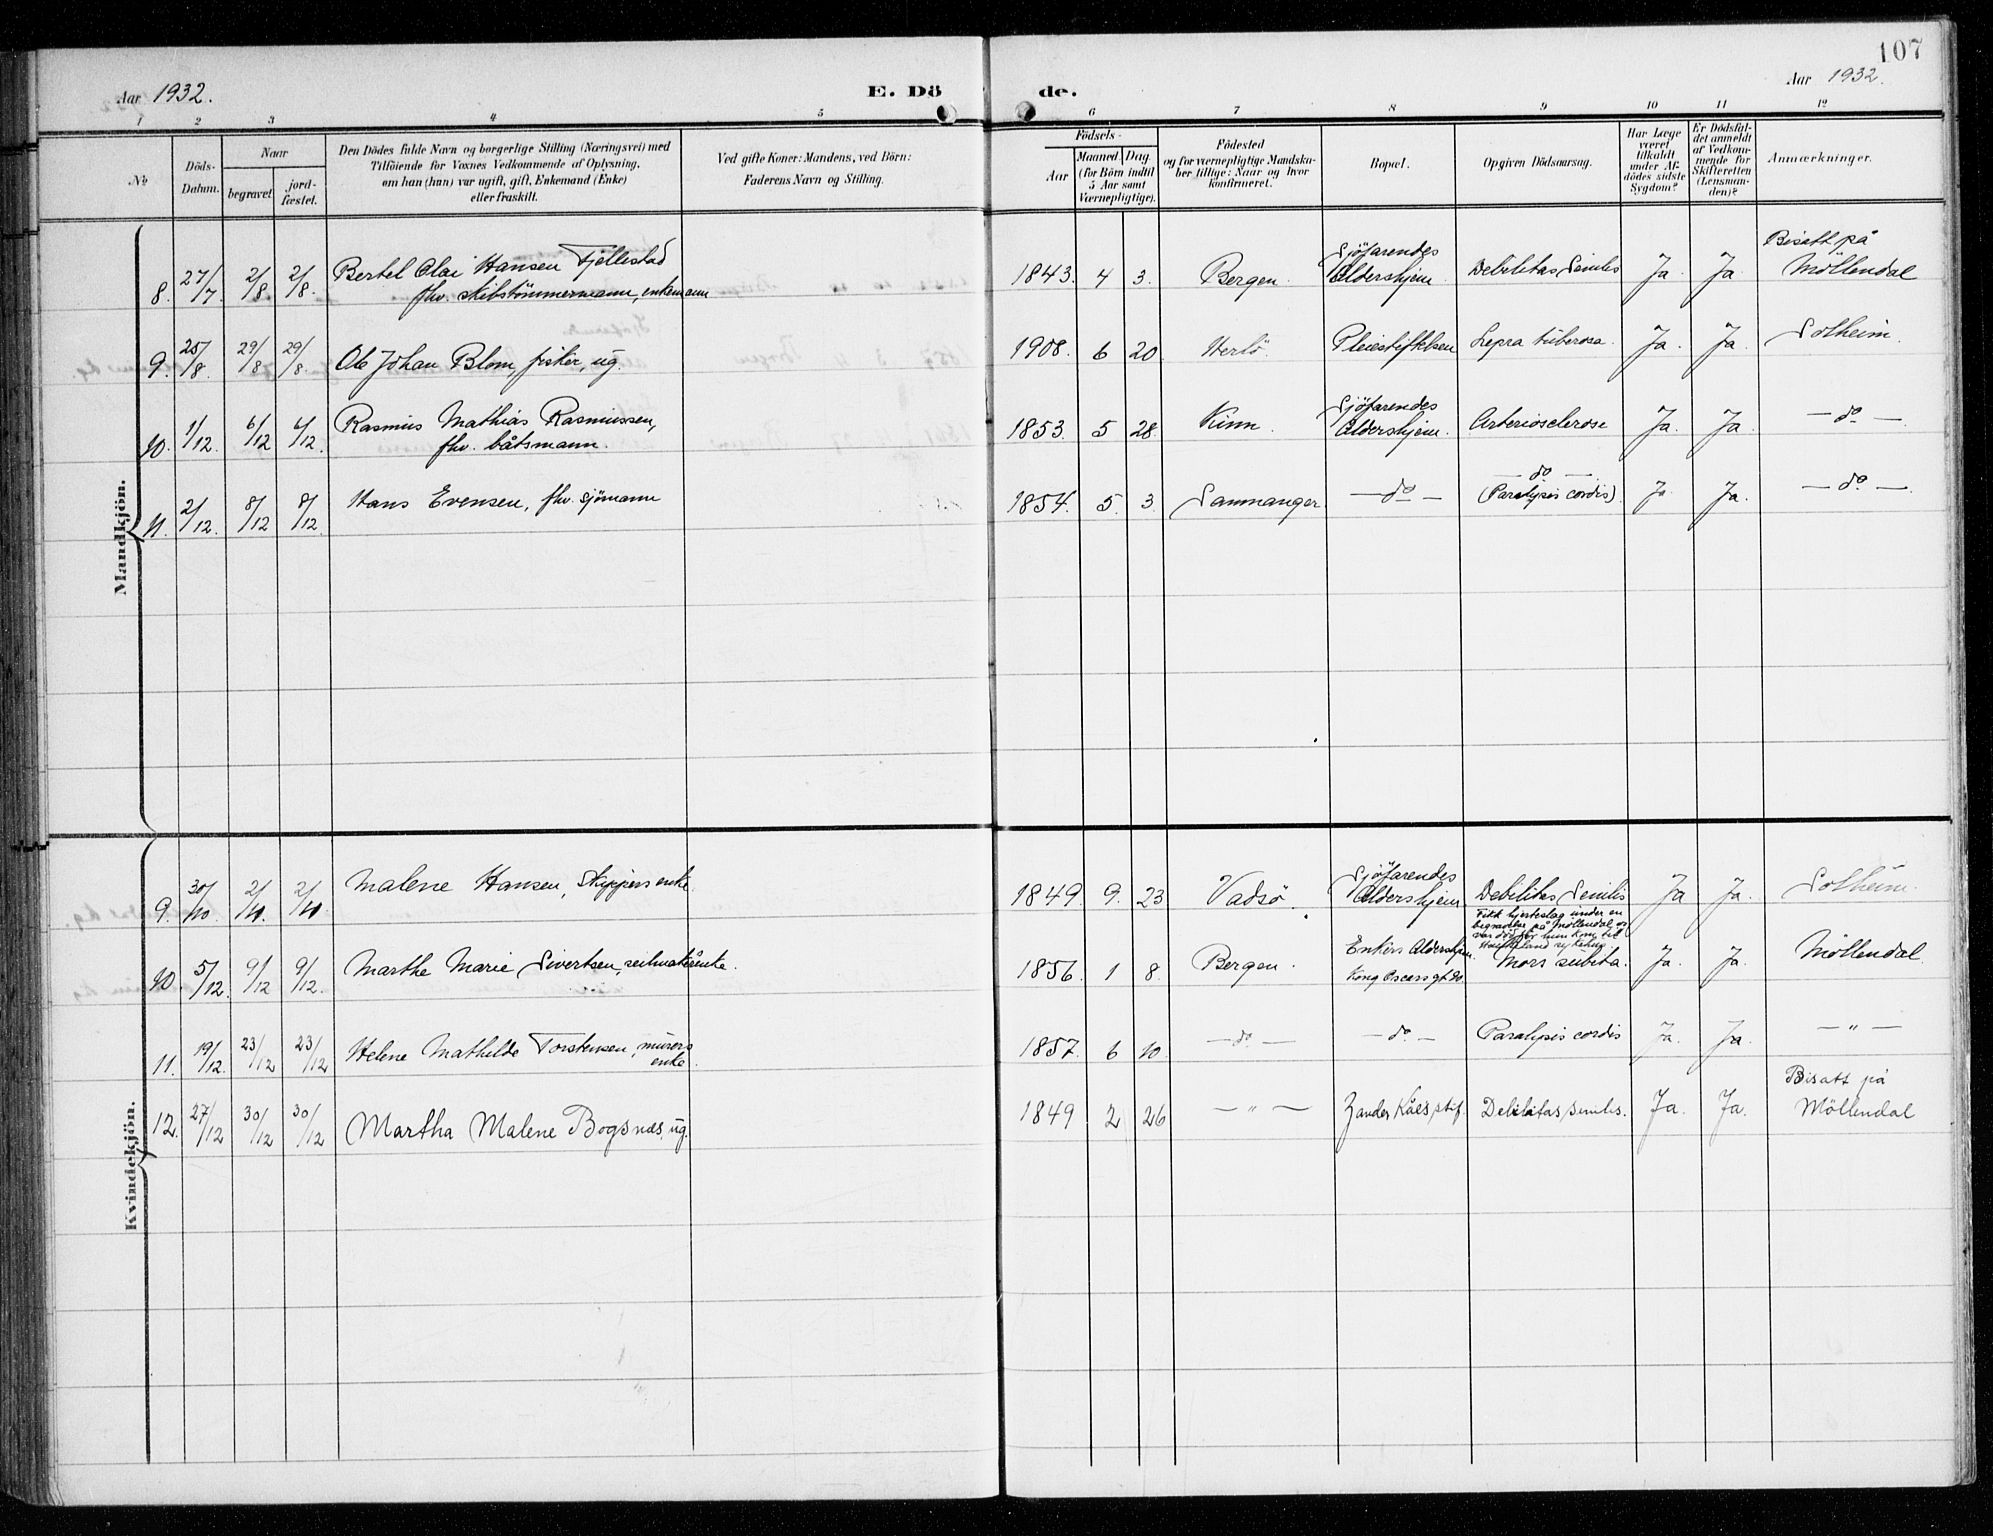 107
Aar 1932.
E. Dö
de.
Aar 1932.
1 2 3 4 5 6 7 8 9 10 11 12
No
Döds-
Datum.
Naar
begravet
jord-
fæstet.
Den Dödes fulde Navn og borgerlige Stilling (Næringsvei) med
Tilföiende for Voxnes Vedkommende af Oplysning,
om han (hun) var ugift, gift, Enkemand (Enke)
eller fraskilt.
Ved gifte Koner: Mandens, ved Börn:
Faderens Navn og Stilling.
Födsels-
Aar
Maaned Dag
(for Börn indtil
5 Aar samt
Værnepligtige).
Födested
og for værnepligtige Mandska-
ber tillige: Naar og hvor
konfirmeret.
Bopæl.
Opgiven Dödsaarsag.
Har Læge
været
tilkaldt
under Af-
dödes sidste
Sygdom?
Er Dödsfal-
det anmeldt
af Vedkom-
mende for
Skifteretten
(Lensman-
den)?
Anmærkninger.
Mandkjön.
8. 27/7 2/8 2/8. Bertel Olai Hansen Fjellestad
fhv. skibstömmermann, enkemann
1843. 4 3. Bergen. Sjöfarendes
Aldershjem. Debilitas Senilis Ja. Ja Bisatt på
Möllendal
9. 25/8. 29/8 29/8. Ole Johan Blom, fisker, ug.
1908. 6 20 Herlö. Pleiestiftelsen Lepra tuberosa. Ja. Ja. Solheim.
10. 1/12. 6/12 6/12. Rasmus Mathias Rasmussen,
fhv. båtsmann.
1853. 5 28. Kinn. Sjöfarendes
Aldershjem. Arteriosclerose Ja. Ja. — do —
11. 2/12. 8/12 8/12. Hans Evensen, fhv. sjömann
1854. 5. 3. Samnanger — do — — do —
(Paralysis cordis). Ja Ja. — do —.
Kvindekjön.
9. 30/10. 2/10. 2/10 Malene Hansen, Skippers enke.
1849. 9. 23 Vadsö. Sjöfarendes
Aldershjem Debilitas Senilis Ja Ja. Solheim.
10. 5/12. 9/12 9/12. Marthe Marie Sivertsen, enke.
1856. 1 8. Bergen. Enkers Aldershjem.
Kong Oscars gt. Fikk hjerteslag under en
begravelse på Möllendal og
var död för hun kom til
Haukeland sykehus.
Mors subita. Ja. Ja. Möllendal
11. 19/12. 23/12 23/12 Helene Mathilde Torstensen, murers
enke.
1857. 6 10. — do — — do — Paralysis cordis Ja. Ja. — " —
12. 27/12 30/12 30/12 Martha Malene Bogsnæs, ug.
1849 2 26 — " — Zander Kåes stif. Debilitas senilis. Ja. Ja. Bisatt på
Möllendal